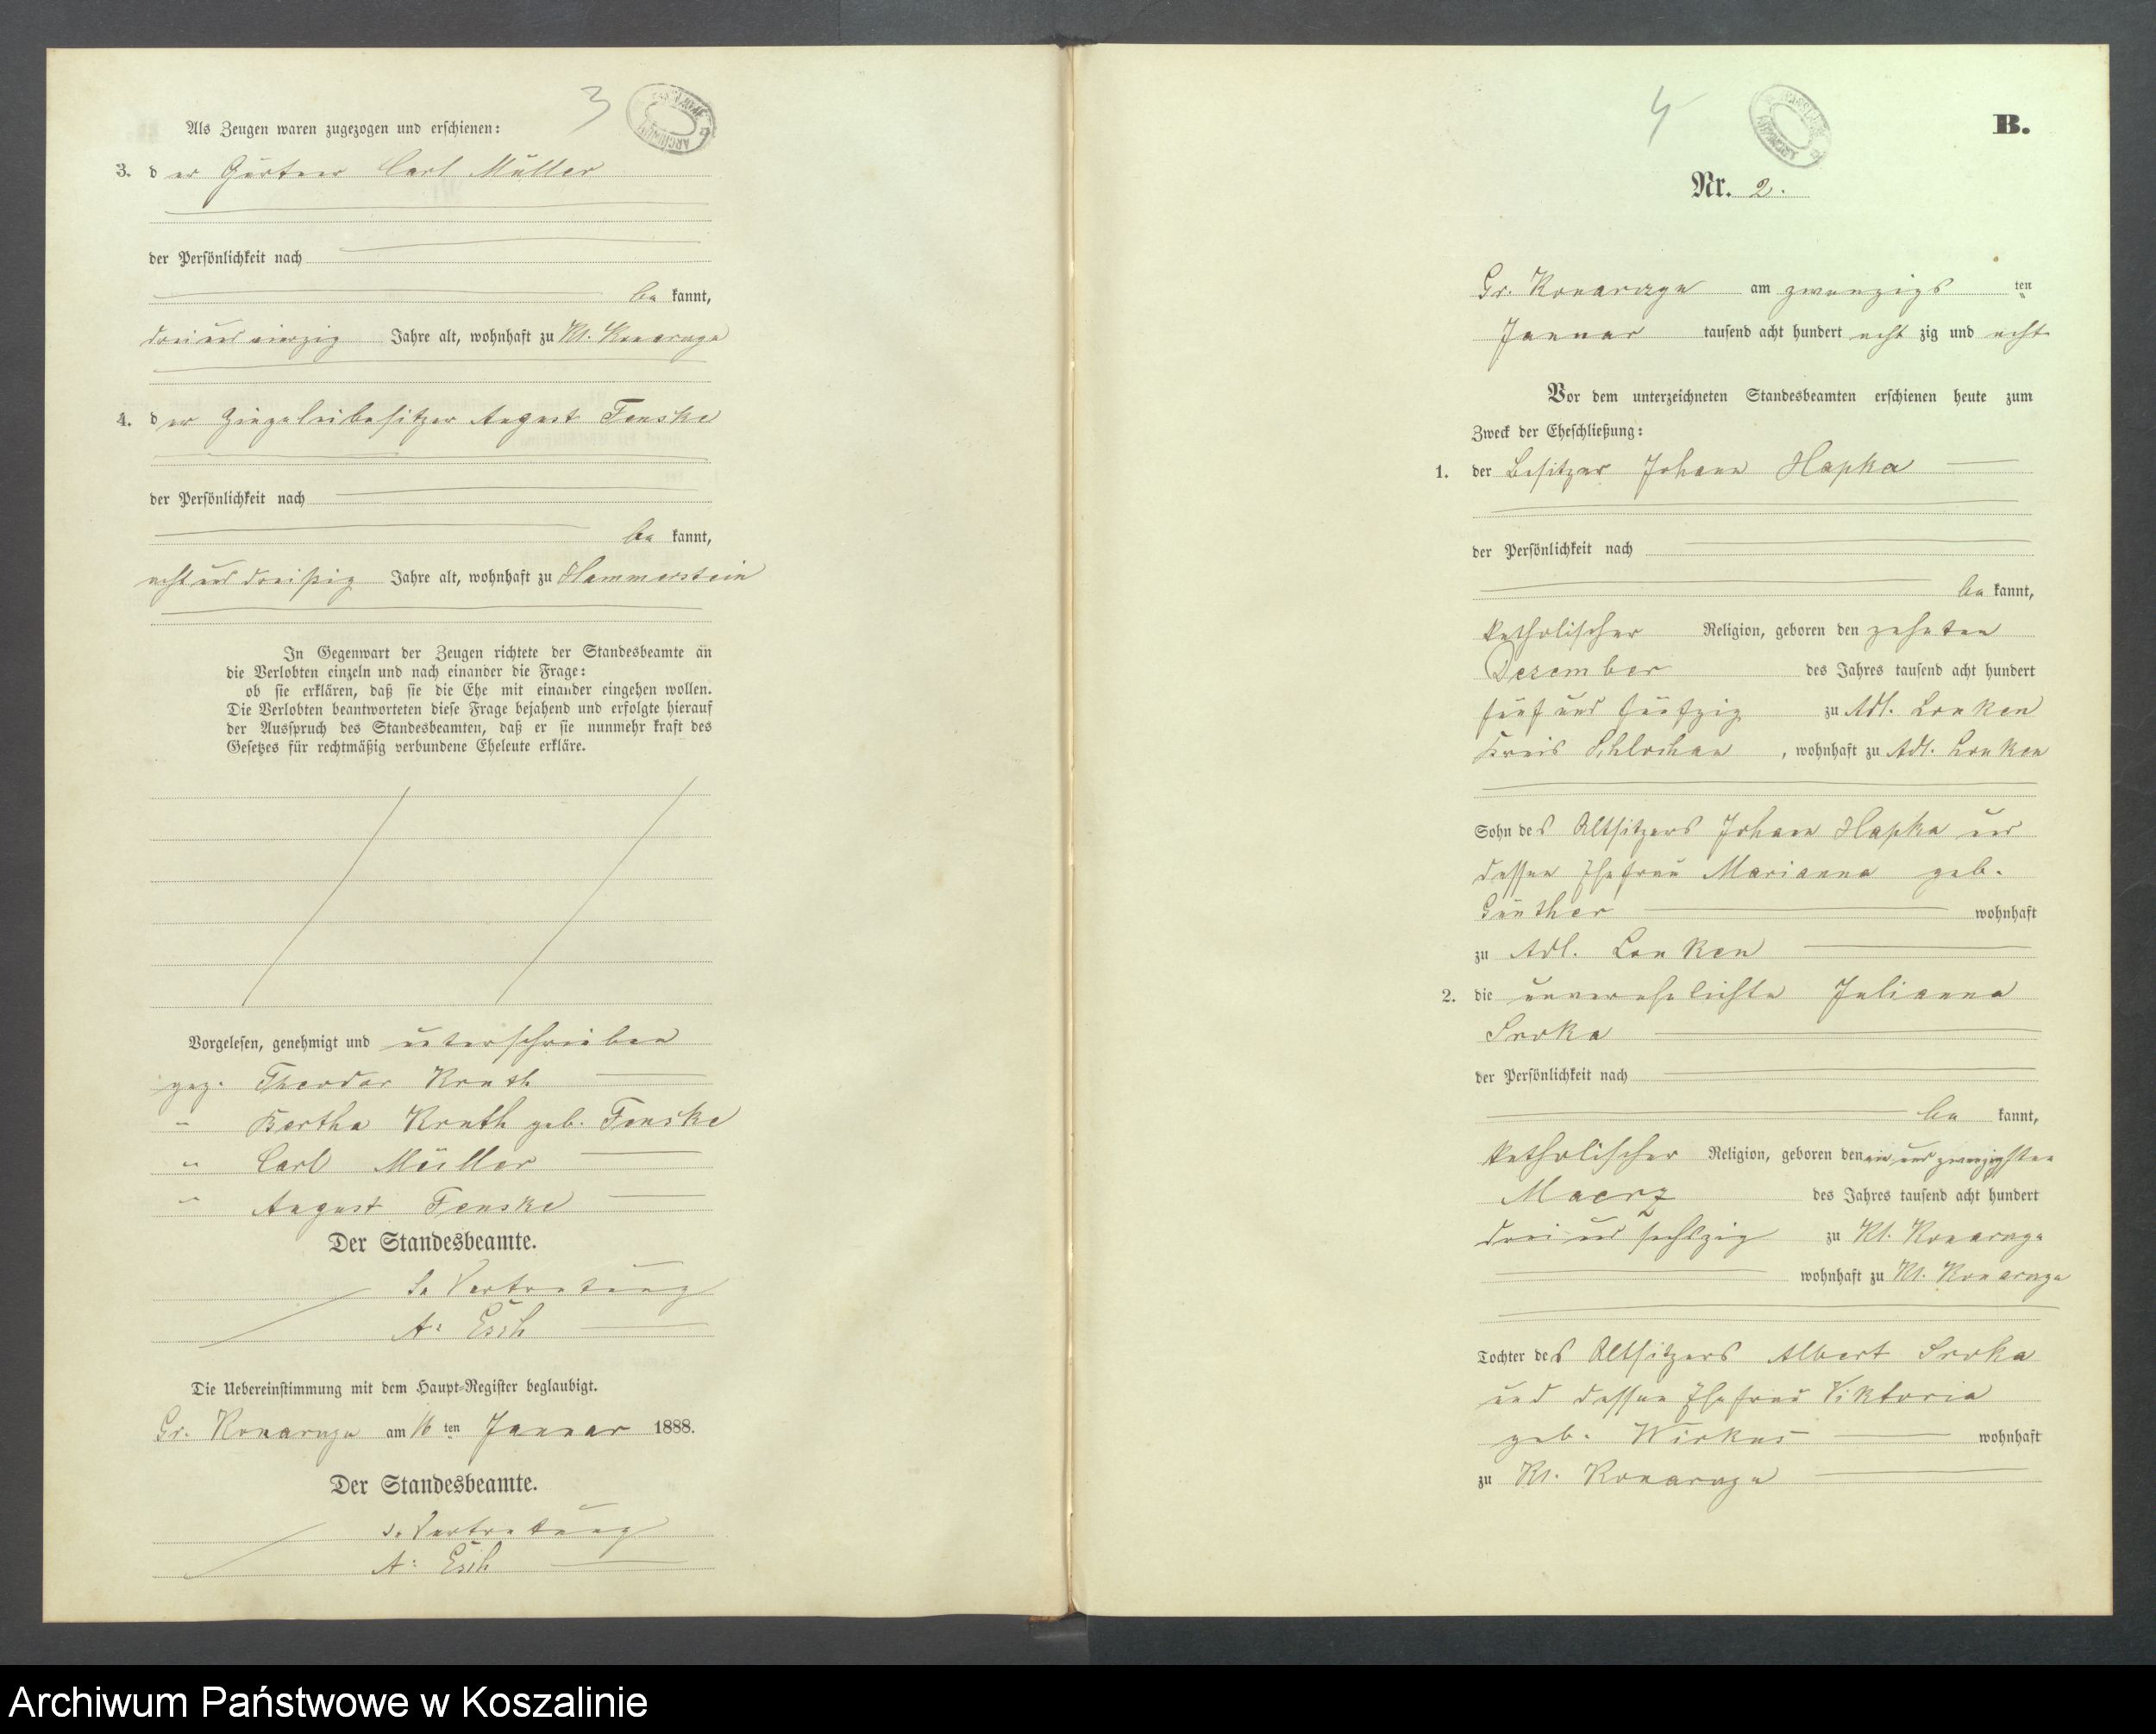 3
Als Zeugen waren zugezogen und erschienen:
3. der Gärtner Carl Müller
der Persönlichkeit nach
be kannt,
drei und vierzig Jahre alt, wohnhaft zu Kl. Konarczyn
4. der Ziegeleibesitzer August Fenske
der Persönlichkeit nach
be kannt,
acht und dreißig Jahre alt, wohnhaft zu Hammerstein
In Gegenwart der Zeugen richtete der Standesbeamte an
die Verlobten einzeln und nach einander die Frage:
ob sie erklären, daß sie die Ehe mit einander eingehen wollen.
Die Verlobten beantworteten diese Frage bejahend und erfolgte hierauf
der Ausspruch des Standesbeamten, daß er sie nunmehr kraft des
Gesetzes für rechtmäßig verbundene Eheleute erkläre.
Vorgelesen, genehmigt und unterschrieben
gez. Theodor
" Bertha geb. Fenske
" Carl Müller
" August Fenske
Der Standesbeamte.
In Vertretung
A: Esch
Die Uebereinstimmung mit dem Haupt-Register beglaubigt.
Gr. am 16 ten Januar 1888.
Der Standesbeamte.
In Vertretung
A: Esch
4
B.
Nr. 2.
Gr. am zwanzigs ten
Januar tausend acht hundert acht zig und acht
Vor dem unterzeichneten Standesbeamten erschienen heute zum
Zweck der Eheschließung:
1. der Besitzer Johann Hapka
der Persönlichkeit nach
be kannt,
katholischer Religion, geboren den zehnten
Dezember des Jahres tausend acht hundert
fünf und fünfzig zu Adl. Lonken
Kreis Schlochau, wohnhaft zu Adl. Lonken
Sohn des Altsitzers Johann Hapka und
dessen Ehefrau Marianna geb.
Günther wohnhaft
zu Adl. Lonken
2. die unverehelichte Julianna
Sroka
der Persönlichkeit nach
be kannt,
katholischer Religion, geboren den ein und zwanzigsten
Maerz des Jahres tausend acht hundert
drei und sechszig zu Kl.
wohnhaft zu Kl.
Tochter des Altsitzers Albert Sroka
und dessen Ehefrau Viktoria
geb. Wirkus wohnhaft
zu Kl.
Archiwum Państwowe w Koszalinie